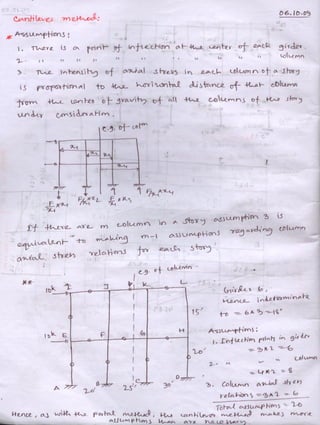 06.10.05
Cantilever method:
* Assumptions:
1. There is a point of inflection at the center of each girder.
2. " " " " " " " " " column
3. The intensity of axial stress in each column of a story
is proportional to the horizontal distance of that column
from the center of gravity of all the columns of the story
under consideration.
c.g. of colm
x1
If there are m column in a story assumption 3 is
equivalent to making m-1 assumptions regarding column
axial stress relations for each story.
c.g. of column
**
10k I J K L
Girder 6,
Hence indeterminate
to = 6×3 = 18°
10k E F G H
Assumptions:
1. Inflection points in girder
= 3×2 = 6
20'
2. " " " column
= 4×2 = 8
A 20' B 25' C 30' D
3. Column axial stress
relations = 3×2 = 6
Total assumptions = 20
Hence, as with the portal method, the cantilever method makes more
assumptions than are necessary.